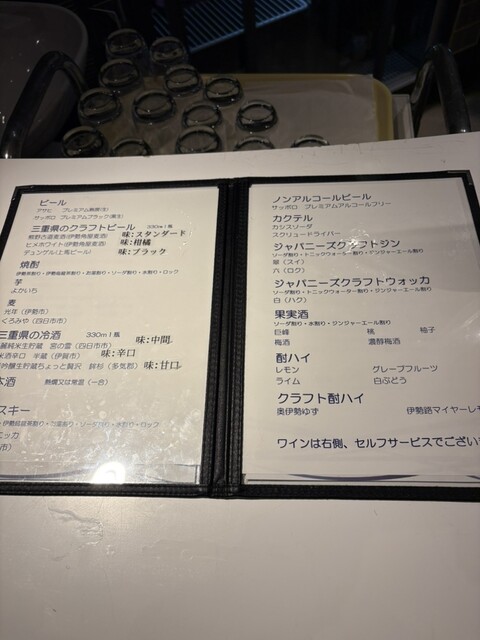 ビール
アサヒ プレミアム熟撰(生)
サッポロ プレミアムブラック(黒生)
三重県のクラフトビール 330ml瓶
熊野古道麦酒(伊勢角屋麦酒) 味:スタンダード
ヒメホワイト(伊勢角屋麦酒) 味:柑橘
デュンゲル(上馬ビール) 味:ブラック
焼酎
芋
よかいち
麦
光年(伊勢市)
くろみや(四日市市)
三重県の冷酒 330ml瓶
純米生貯蔵 宮の雪(四日市市) 味:中間
米酒辛口 半蔵(伊賀市) 味:辛口
吟醸生貯蔵ちょっと贅沢 鉾杉(多気郡) 味:甘口
本酒 熱燗又は常温(一合)
スキー
ニッカ
市)
ノンアルコールビール
サッポロ プレミアムアルコールフリー
カクテル
カシスソーダ
スクリュードライバー
ジャパニーズクラフトジン
ソーダ割り・トニックウォーター割り・ジンジャーエール割り
翠(スイ)
六(ロク)
ジャパニーズクラフトウォッカ
ソーダ割り・トニックウォーター割り・ジンジャーエール割り
白(ハク)
果実酒
ソーダ割り・水割り・ジンジャーエール割り
巨峰 桃 柚子
梅酒 濃醇梅酒
酎ハイ
レモン グレープフルーツ
ライム 白ぶどう
クラフト酎ハイ
奥伊勢ゆず 伊勢路マイヤーレモ
ワインは右側、セルフサービスでござい